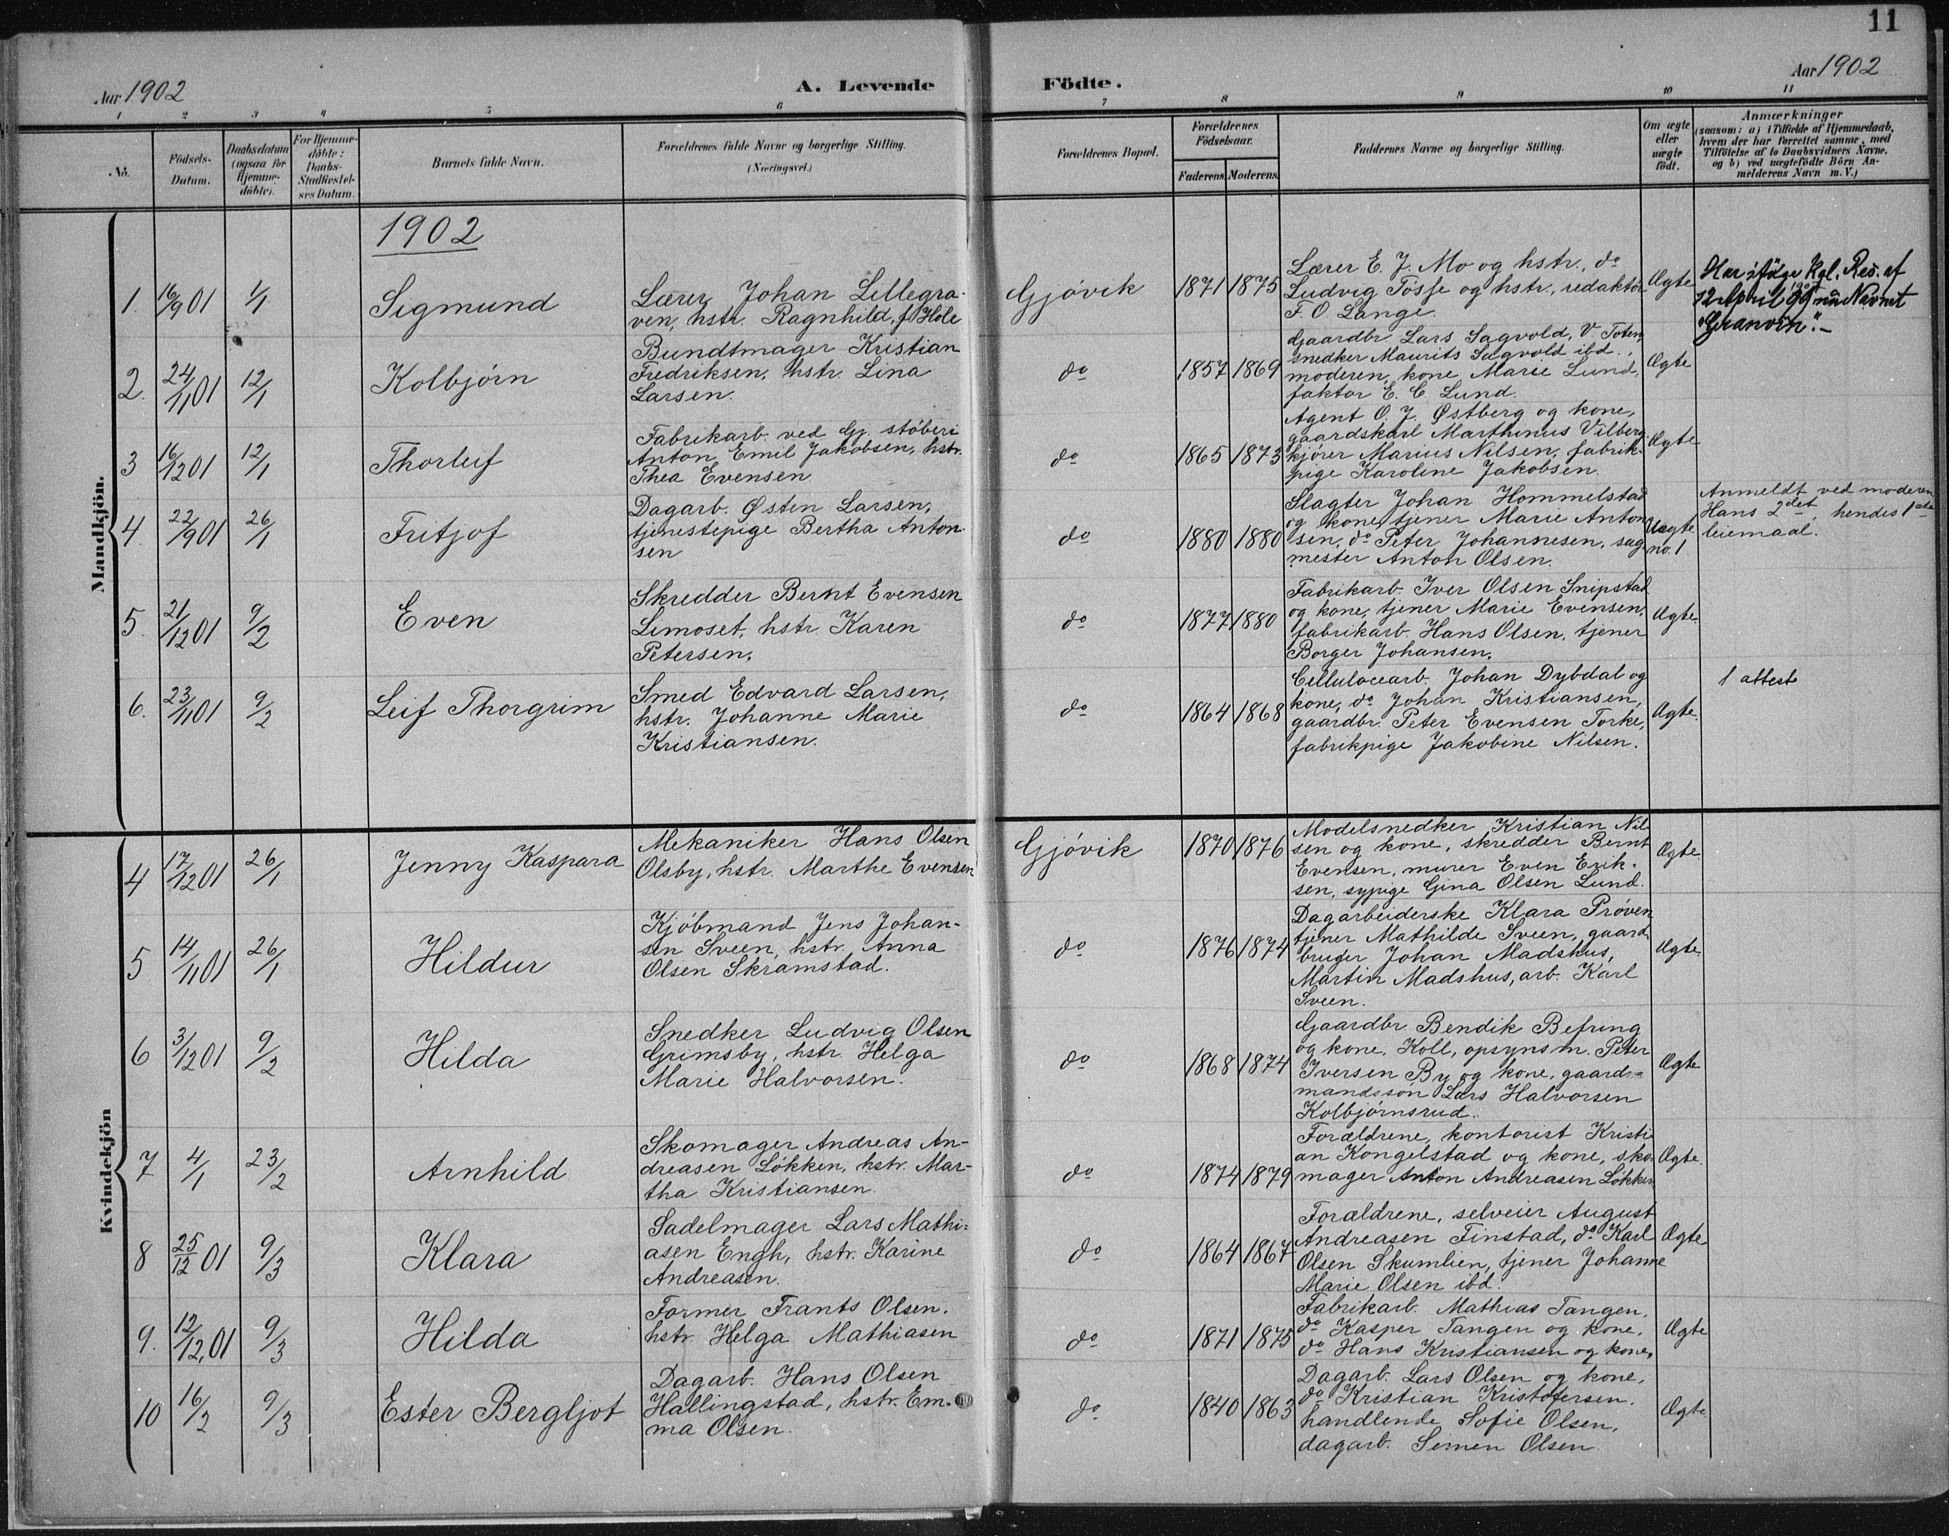 11
Aar 1902
A. Levende
Födte.
Aar 1902
1 2 3 4 5 6 7 8 9 10 11
No.
Födsels-
Datum.
Daabsdatum
(ogsaa for
Hjemme-
döbte).
For Hjemme-
döbte:
Daabs-
Stadfæstel-
ses Datum.
Barnets fulde Navn.
Forældrenes fulde Navne og borgerlige Stilling.
(Næringsvei.)
Forældrenes Bopæl.
Forældrenes
Födselsaar.
Faderens. Moderens.
Faddernes Navne og borgerlige Stilling.
Om ægte
eller
uægte
födt.
Anmærkninger
(saasom: a) i Tilfælde af Hjemmedaab,
hvem der har forrettet samme, med
Tilföielse af to Daabsvidners Navne,
og b) ved uægtefödte Börn An-
melderens Navn m. V.)
Mandkjön.
1902
1. 16/9 01 1/1 Sigmund
Lærer Johan Lillegra-
ven, hstr. Ragnhild, f. Hole
Gjøvik 1871 1875
Lærer E. J. Mo og hstr., do
Ludvig Tosse og hstr., redaktør
F. O. Lange.
Ægte
Har ifølge Kgl. Res. af
12 April 99 nu Navnet
"Granvin".-
2. 24/11 01 12/1 Kolbjørn
Bundtmager Kristian
Fredriksen, hstr. Lina
Larsen.
do 1857 1869
Gaardbr Lars Sagvold, V. Toten,
snedker Maurits Sagvold ibd.,
moderen, kone Marie Lund,
faktor E. C. Lund.
Ægte
3 16/12 01 12/1 Thorleif
Fabrikarb. ved Gj. støberi
Anton Emil Jakobsen, hstr.
Thea Evensen
do 1865 1873
Agent O. J. Østberg og kone,
gaardskarl Marthinus Vilberg,
kjører Marius Nilsen, fabrik-
pige Karoline Jakobsen.
Ægte
4. 22/9 01 26/1 Fritjof
Dagarb. Østen Larsen,
tjenestepige Bertha Anton-
sen
do 1880 1880
Slagter Johan Hommelstad
og kone, tjener Marie Anton-
sen, do Peter Johannesen, sag-
mester Anton Olsen.
Uægte
no. 1
Anmeldt ved moderen
Hans 2det, hendes 1ste
leiemaal.
5. 21/12 01 9/2 Even
Skredder Bernt Evensen
Limoset, hstr. Karen
Petersen.
do 1877 1880
Fabrikarb. Iver Olsen Snipstad
og kone, tjener Marie Evensen,
fabrikarb. Hans Olsen, tjener
Borger Johansen.
Ægte
6. 23/11 01 9/2 Leif Thorgrim
Smed Edvard Larsen,
hstr. Johanne Marie
Kristiansen.
do 1864 1868
Cellulocearb. Johan Dybdal og
kone, do Johan Kristiansen,
gaardbr. Peter Evensen Torke,
fabrikpige Jakobine Nilsen.
Ægte.
1 attest
Kvindekjön
4 17/12 01 26/1 Jenny Kaspara
Mekaniker Hans Olsen
Olsby, hstr. Marthe Evensen
Gjøvik 1870 1876
Modelsnedker Kristian Nil-
sen og kone, skredder Bernt
Evensen, murer Even Erik-
sen, sypige Gina Olsen Lund.
Ægte
5 14/11 01 26/1 Hildur
Kjøbmand Jens Johan-
sen Sveen, hstr. Anna
Olsen Skramstad.
do 1876 1874
Dagarbeiderske Klara Prøven
tjener Mathilde Sveen, gaard-
bruger Johan Madshus,
Martin Madshus, arb. Karl
Sveen.
Ægte.
6 3/12 01 9/2 Hilda
Snedker Ludvig Olsen
Grimsby, hstr. Helga
Marie Halvorsen.
do 1868 1874
Gaardbr Bendik Befring
og kone, Koll, opsynsm. Peter
Iversen By og kone, gaard-
mandssøn Lars Halvorsen
Kolbjørnsrud.
Ægte
7 4/1 23/2 Arnhild
Skomager Andreas An-
dreasen Løkken, hstr. Mar-
tha Kristiansen.
do 1874 1879
Forældrene, kontorist Kristi-
an Kongelstad og kone, sko-
mager Anton Andreasen Løkken
Ægte.
8 25/12 01 9/3 Klara
Sadelmager Lars Mathi-
asen Engh, hstr. Karine
Andreasen.
do 1864 1867
Forældrene, selveier August
Andreasen Finstad, do Karl
Olsen Skumlien, tjener Johanne
Marie Olsen ibd.
Ægte
9. 12/12 01 9/3 Hilda
Former Frants Olsen.
hstr. Helga Mathiasen
do 1871 1875
Fabrikarb. Mathias Tangen,
do Kasper Tangen og kone,
do Hans Kristiansen og kone.
Ægte
10 16/2 9/3 Ester Bergljot
Dagarb. Hans Olsen
Hallingstad, hstr. Em-
ma Olsen.
do 1840 1863
Dagarb. Lars Olsen og kone,
do Kristian Kristofersen,
handlende Sofie Olsen,
dagarb. Semen Olsen
Ægte